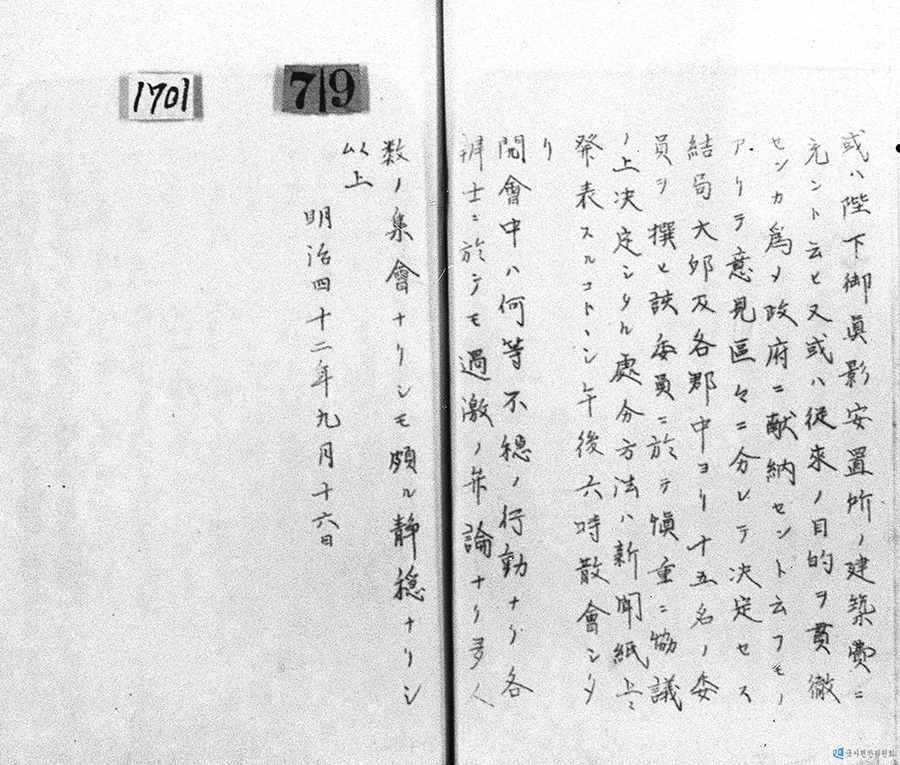 或ハ陛下御眞影安置所ノ建築費ニ
充ント云ヒ又或ハ従来ノ目的ヲ貫徹
センカ爲メ政府ニ献納セント云フモノ
アリテ意見區々ニ分レテ決定セス
結局大邱及各郡中ヨリ十五名ノ委
員ヲ撰ヒ該委員ニ於テ愼重ニ協議
ノ上決定シタル處分方法ハ新聞紙上ニ
発表スルコトヽシ午後六時散會シタ
リ
開會中ハ何等不穏ノ行動ナク各
辨士ニ於テモ過激ノ弁論ナク多人
数ノ集會ナリシモ頗ル静穏ナリシ
以上
明治四十二年九月十六日
719
1701
국사편찬위원회